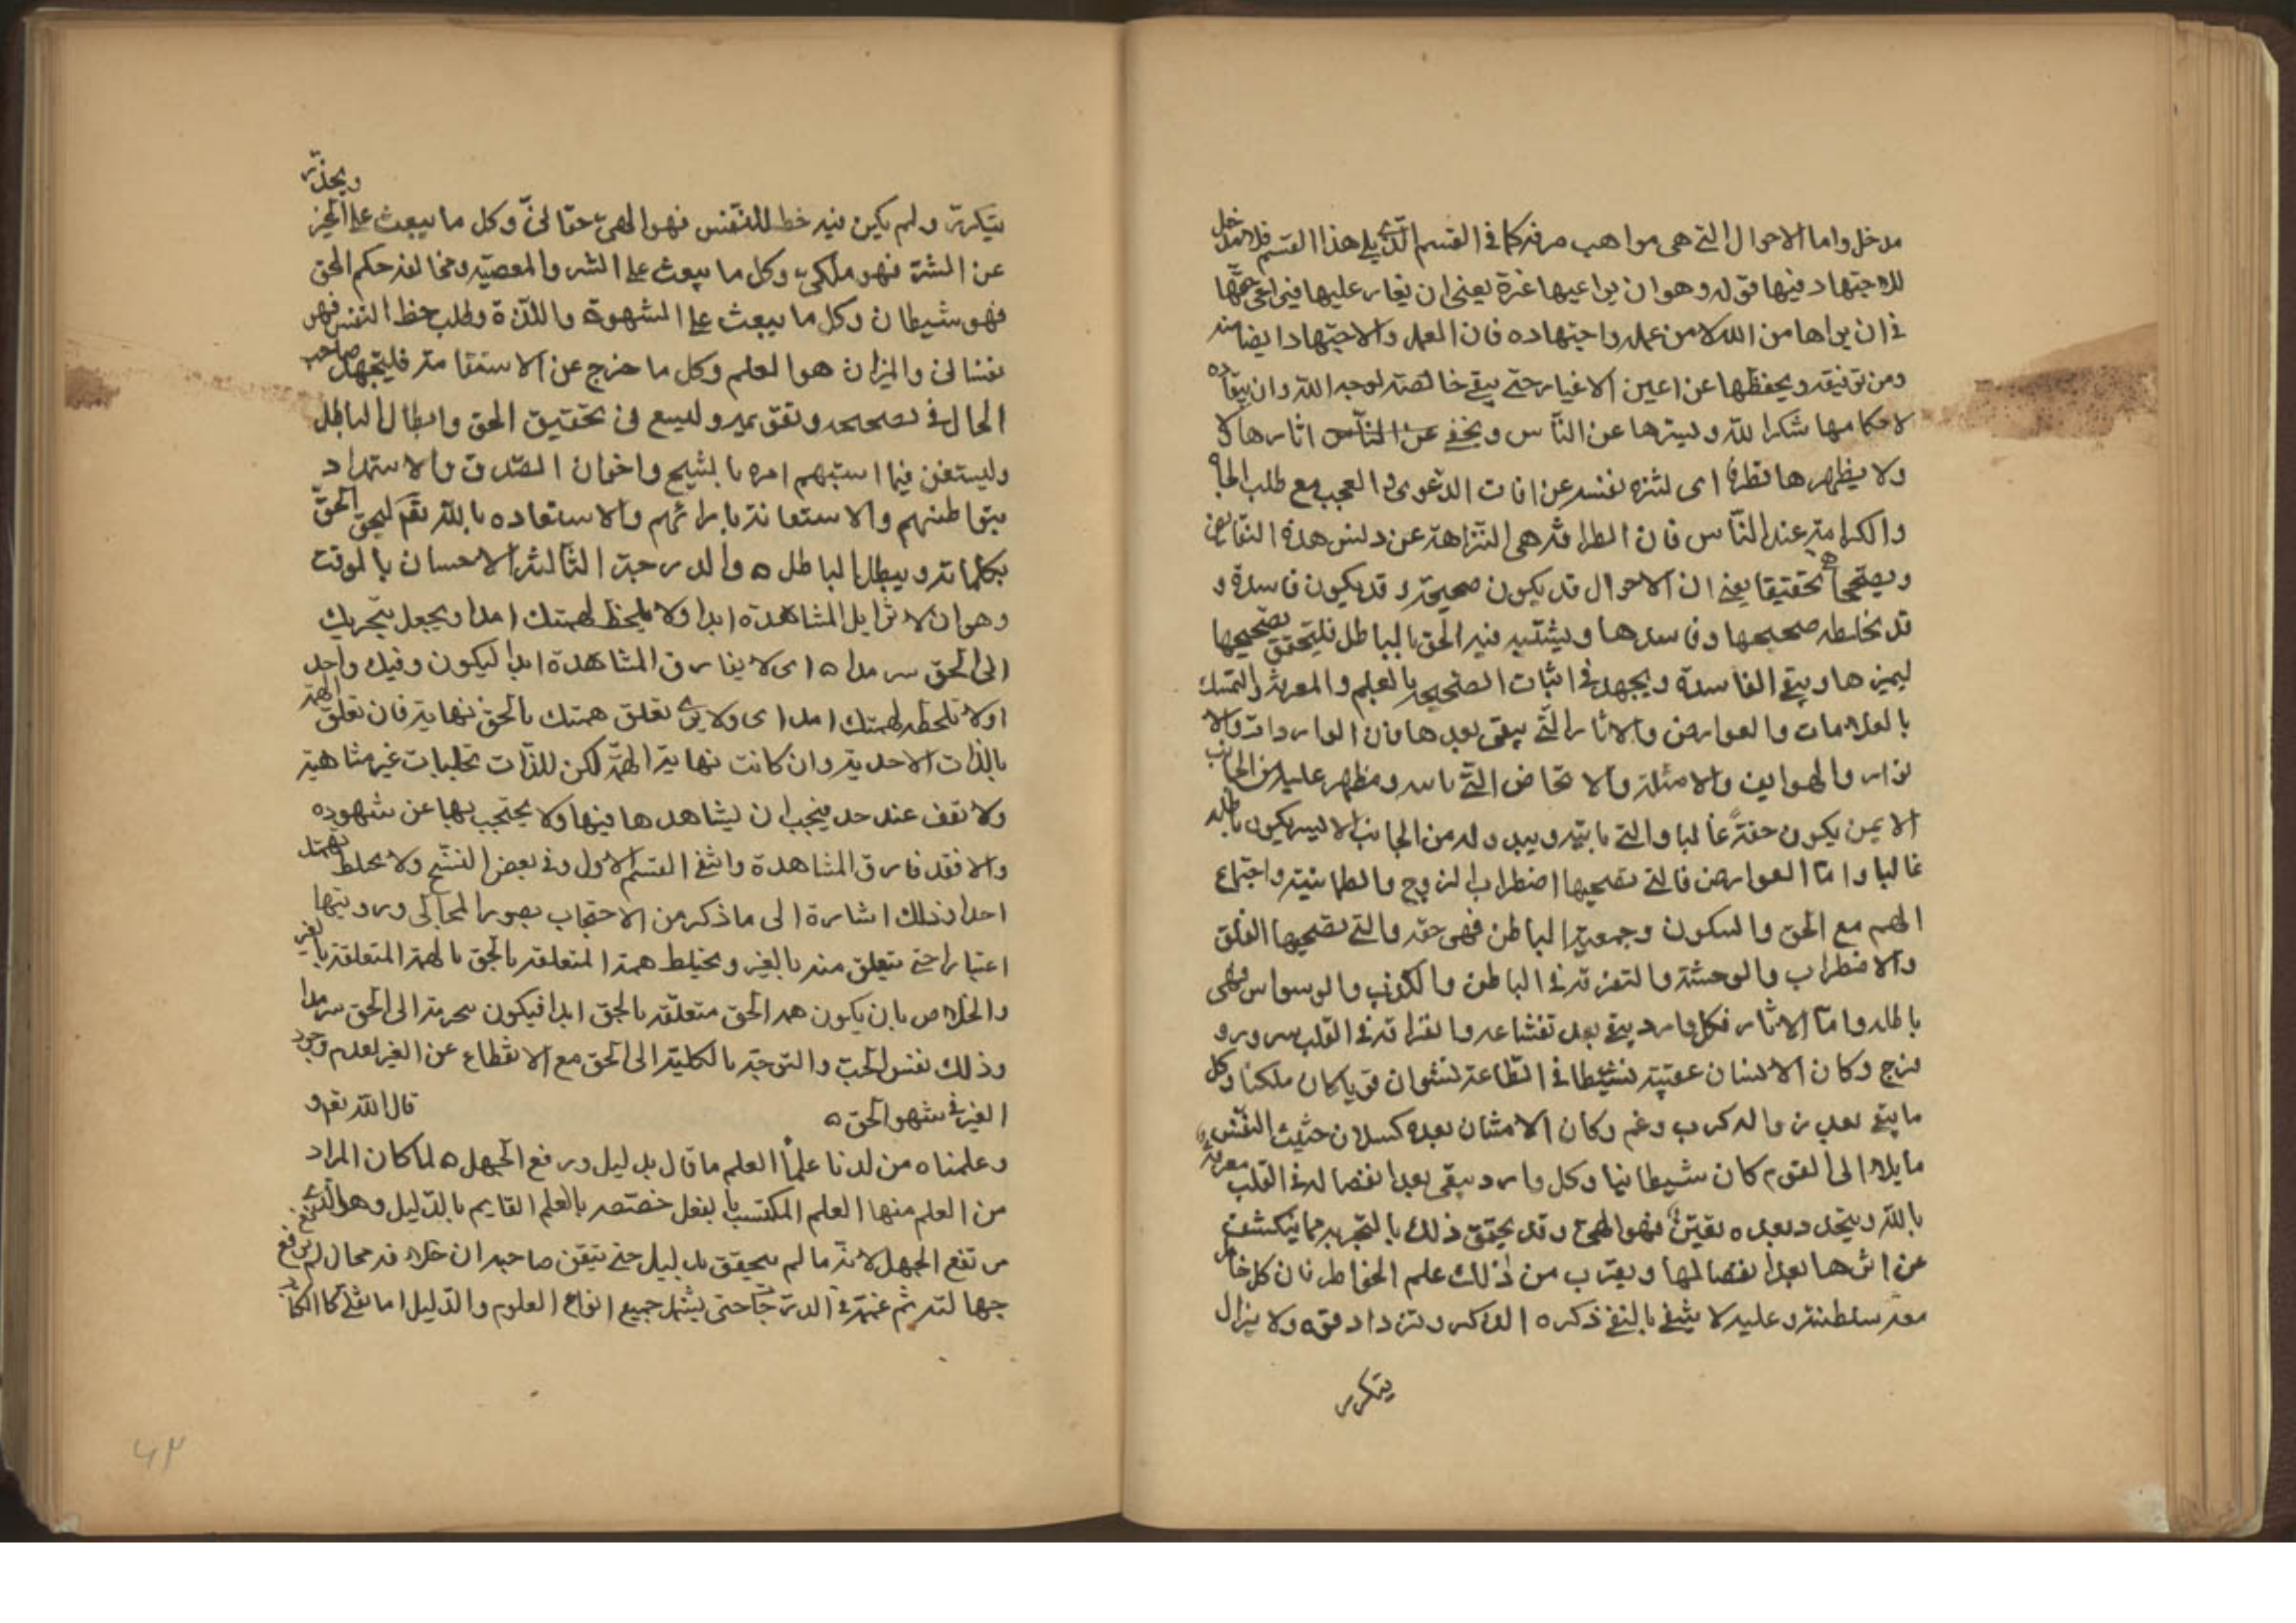 مدخل واما الاحوال التي هي مواهب صرفه كما في القسم الذي يلي هذا القسم فلا مدخل
للاجتهاد فيها قوله وهو ان يراعيها غيرة يعني ان يغار عليها
في ان يراها من الله لا من عمله واجتهاده فان العمل والاجتهاد ايضا منه
ومن توفيقه ويحفظها عن اعين الاغيار حتى يبقى خالصة لوجه الله وان
لاحكامها شكرا لله ويسترها عن الناس ويخفي عن الناس اثارها و
ولا يظهرها تظرفا اى لتنزه نفسه عن افات الدعوى و العجب مع طلب الجاه
والكرامة عند الناس فان الظرافة هي النزاهة عن دنس هذه النقايص
ويصححها تحقيقا يعني ان الاحوال قد يكون صحيحة و قد يكون فاسدة و
قد يخلطه صحيحها وفاسدها ويشتبه فيه الحق بالباطل فليتحقق تصحيحها
ليميزها وينفي الفاسدة ويجهد في اثبات الصحيحة بالعلم والمعرفة والتمسك
بالعلامات والعوارض والاثار التي يبقى بعدها فان الواردات والا
نوار والهواتف والامثلة والاشخاص التي تاسه ومظهر عليه من الجانب
الايمن يكون حقة غالبا والتي تاتيه ويبدو له من الجانب الايسر يكون باطله
غالبا واما العوارض فالتي تصحبها اضطراب الروح والطمانينة واجتماع
الهم مع الحق والسكون وجمعية الباطن فهي حقه والتي تصحبها القلق
والاضطراب والوحشة والتفرقه في الباطن والكرب والوسواس فهي
باطله واما الاثار فكل وارد يبقى بعد تقشاعه وانفراقه في القلب سرور و
فرح وكان الانسان عقيبه نشيطا في الطاعة نشوان قويا كان ملكيا وكل
ما يبقى بعد زواله كرب وغم وكان الانسان بعده كسلان خبيث النفس
مايلا الى النوم كان شيطانيا وكل وارد يبقى بعد انفصاله في القلب معرفة
بالله ويتجدد بعده يقين فهو الهي وقد يحقق ذلك بالتجربه مما ينكشف
عن اثرها بعد انفصالها ويقرب من ذلك علم الخواطر فان كل خاطر
معه سلطنة وعليه لا ينتفي بالنفي ذكره الذاكر وتزداد قوة ولا يزال
يتكرر
يتكرر ولم يكن فيه حظ للنفس فهو الهي حقاني وكل ما يبعث على الخير ويحذر
عن الشر فهو ملكي وكل ما يبعث على الشر والمعصيه ومخالفه حكم الحق
فهو شيطان وكل ما يبعث على الشهوة واللذة وطلب حظ النفس فهو
نفساني والميزان هو العلم وكل ما خرج عن الاستقامة فليجهد صاحب
الحال في تصحيحه وتقويمه وليسع في تحقيق الحق وابطال الباطل
وليستعن فيما استبهم امره بالشيخ واخوان الصدق والاستمداد
ببواطنهم والاستعانة بارائهم والاستعاده بالله تعم ليحق الحق
بكلماته ويبطل الباطل ه والدرجة الثالثة الاحسان بالوقت
وهو ان لا تزايل المشاهدة ابدا ولا يلحظ لهمتك امدا ويجعل هجرتك
الى الحق سرمدا ه اى لا يفارق المشاهدة ابدا ليكون وقتك واحد
اولا تلحظ لهمتك امدا اى ولا يرى تعلق همتك بالحق نهاية فان تعلق الهمة
بالذات الاحدية وان كانت نهاية الهمة لكن للذات تجليات غير متناهية
ولا تقف عند حد فيجب ان يشاهدها فيها ولا يحتجب بها عن شهوده
والا فقد فارق المشاهدة وانتفى القسم الاول وفي بعض النسخ ولا يخلط بهمتك
احدا وذلك اشارة الى ما ذكر من الاحتجاب بصور المجالي ورويتها
اعتبارا حتى يتعلق منه بالغير ويختلط همة المتعلقه بالحق بالهمة المتعلقة بالغير
والخلاص بان يكون همه الحق متعلقه بالحق ابدا فيكون هجرته الى الحق سرمدا
وذلك نفس الحب والتوجه بالكلية الى الحق مع الانقطاع عن الغير لعدم وجود
الغير في شهود الحق ه قال الله تعم و
وعلمناه من لدنا علما العلم ما قال بدليل ورفع الجهل ه لما كان المراد
من العلم منها العلم المكتسب بالفعل خصصه بالعلم القايم بالدليل وهو الذي
مرتفع الجهل لانه ما لم يتحقق بدليل حتى تيقن صاحبه ان خلافه محال لم يرتفع
جهالته ثم عمه في الدرجات حتى يشمل جميع انواع العلوم والدليل اما نقلي كالكتاب